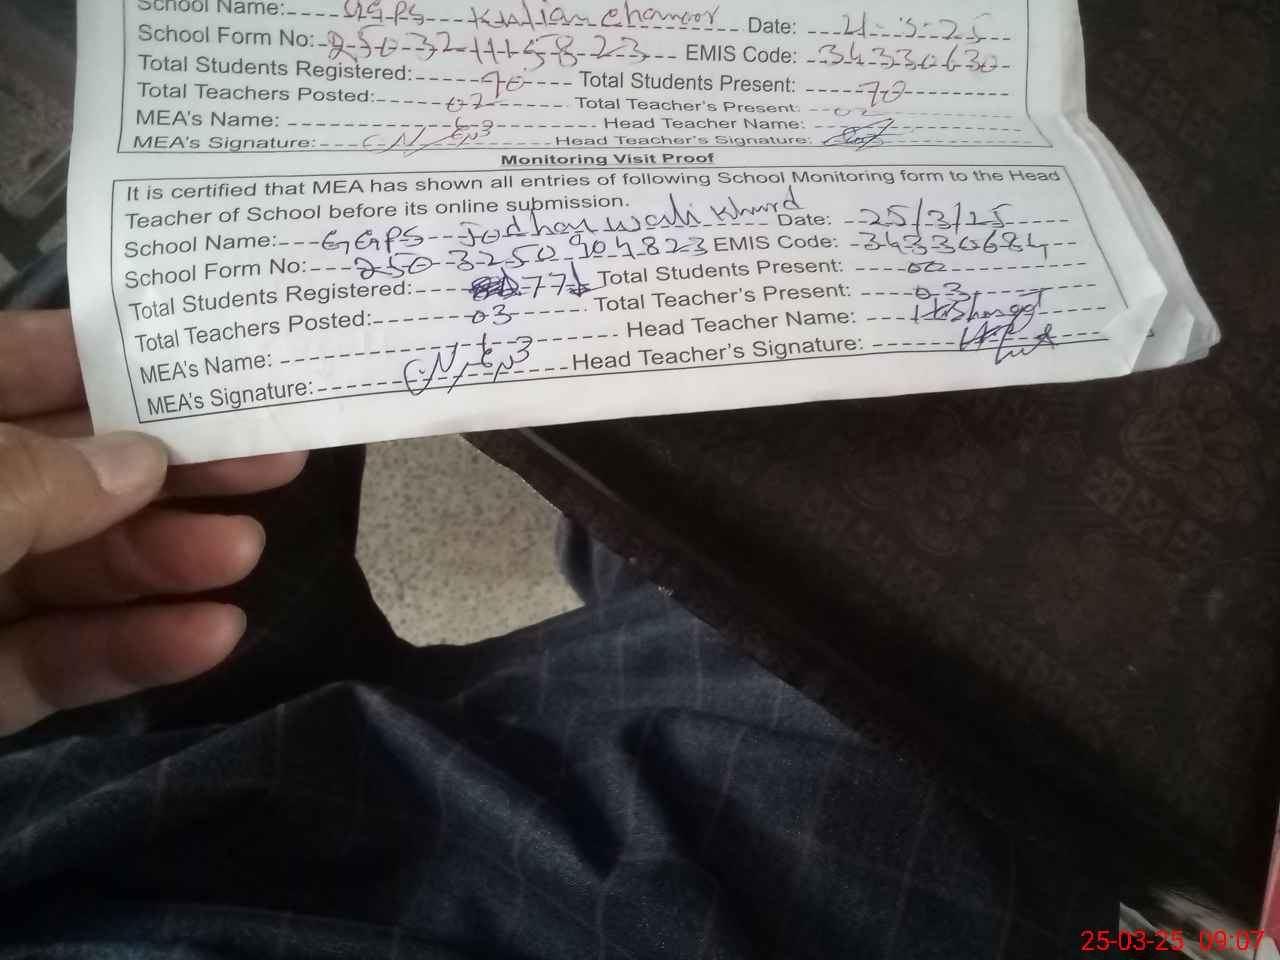 School Name: GGPS Kalian Chanoor Date: 21-3-25
School Form No: 250-32-11-58-23 EMIS Code: 34330630
Total Students Registered: 70 Total Students Present: 70
Total Teachers Posted: 02 Total Teacher's Present: 02
MEA's Name: Head Teacher Name:
MEA's Signature: Head Teacher's Signature:
Monitoring Visit Proof
It is certified that MEA has shown all entries of following School Monitoring form to the Head
Teacher of School before its online submission.
School Name: GGPS Jodhay wali Khurd Date: 25/3/25
School Form No: 250-3250904823 EMIS Code: 34330684
Total Students Registered: 77 Total Students Present: 00
Total Teachers Posted: 03 Total Teacher's Present: 03
MEA's Name: Head Teacher Name:
MEA's Signature: Head Teacher's Signature:
25-03-25 09:07